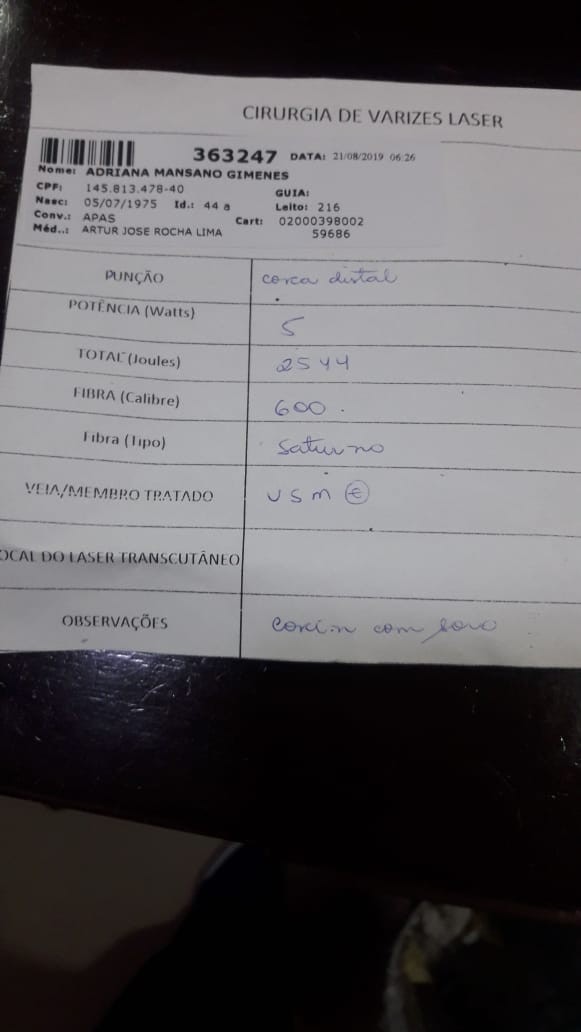 CIRURGIA DE VARIZES LASER
363247 DATA: 21/08/2019 06:26
Nome: ADRIANA MANSANO GIMENES
CPF: 145.813.478-40 GUIA:
Nasc: 05/07/1975 Id.: 44 a Leito: 216
Conv.: APAS Cart: 02000398002
Méd..: ARTUR JOSE ROCHA LIMA 59686
PUNÇÃO coxa distal
POTÊNCIA (Watts) 5
TOTAL (Joules) 2544
FIBRA (Calibre) 600.
Fibra (Tipo) Saturno
VEIA/MEMBRO TRATADO VSM E
OCAL DO LASER TRANSCUTÂNEO
OBSERVAÇÕES com soro